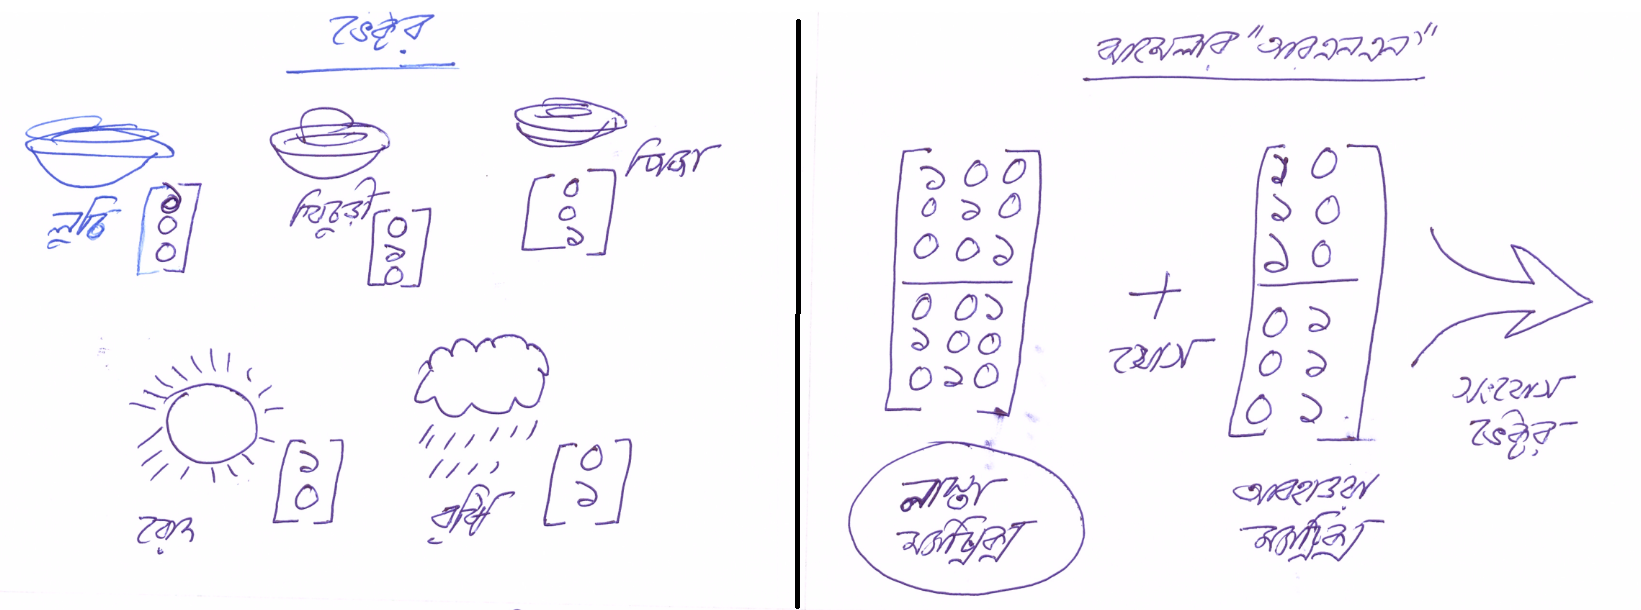 ভেক্টর
লুচি
[১
০
০]
খিচুড়ী
[০
১
০]
পিজা
[০
০
১]
রোদ
[১
০]
বৃষ্টি
[০
১]
ঝামেলার "আরএনএন"
১ ০ ০
০ ১ ০
০ ০ ১
০ ০ ১
১ ০ ০
০ ১ ০
নাস্তা
ম্যাট্রিক্স
+
যোগ
১ ০
১ ০
১ ০
০ ১
০ ১
০ ১
আবহাওয়া
ম্যাট্রিক্স
সংযোগ
ভেক্টর